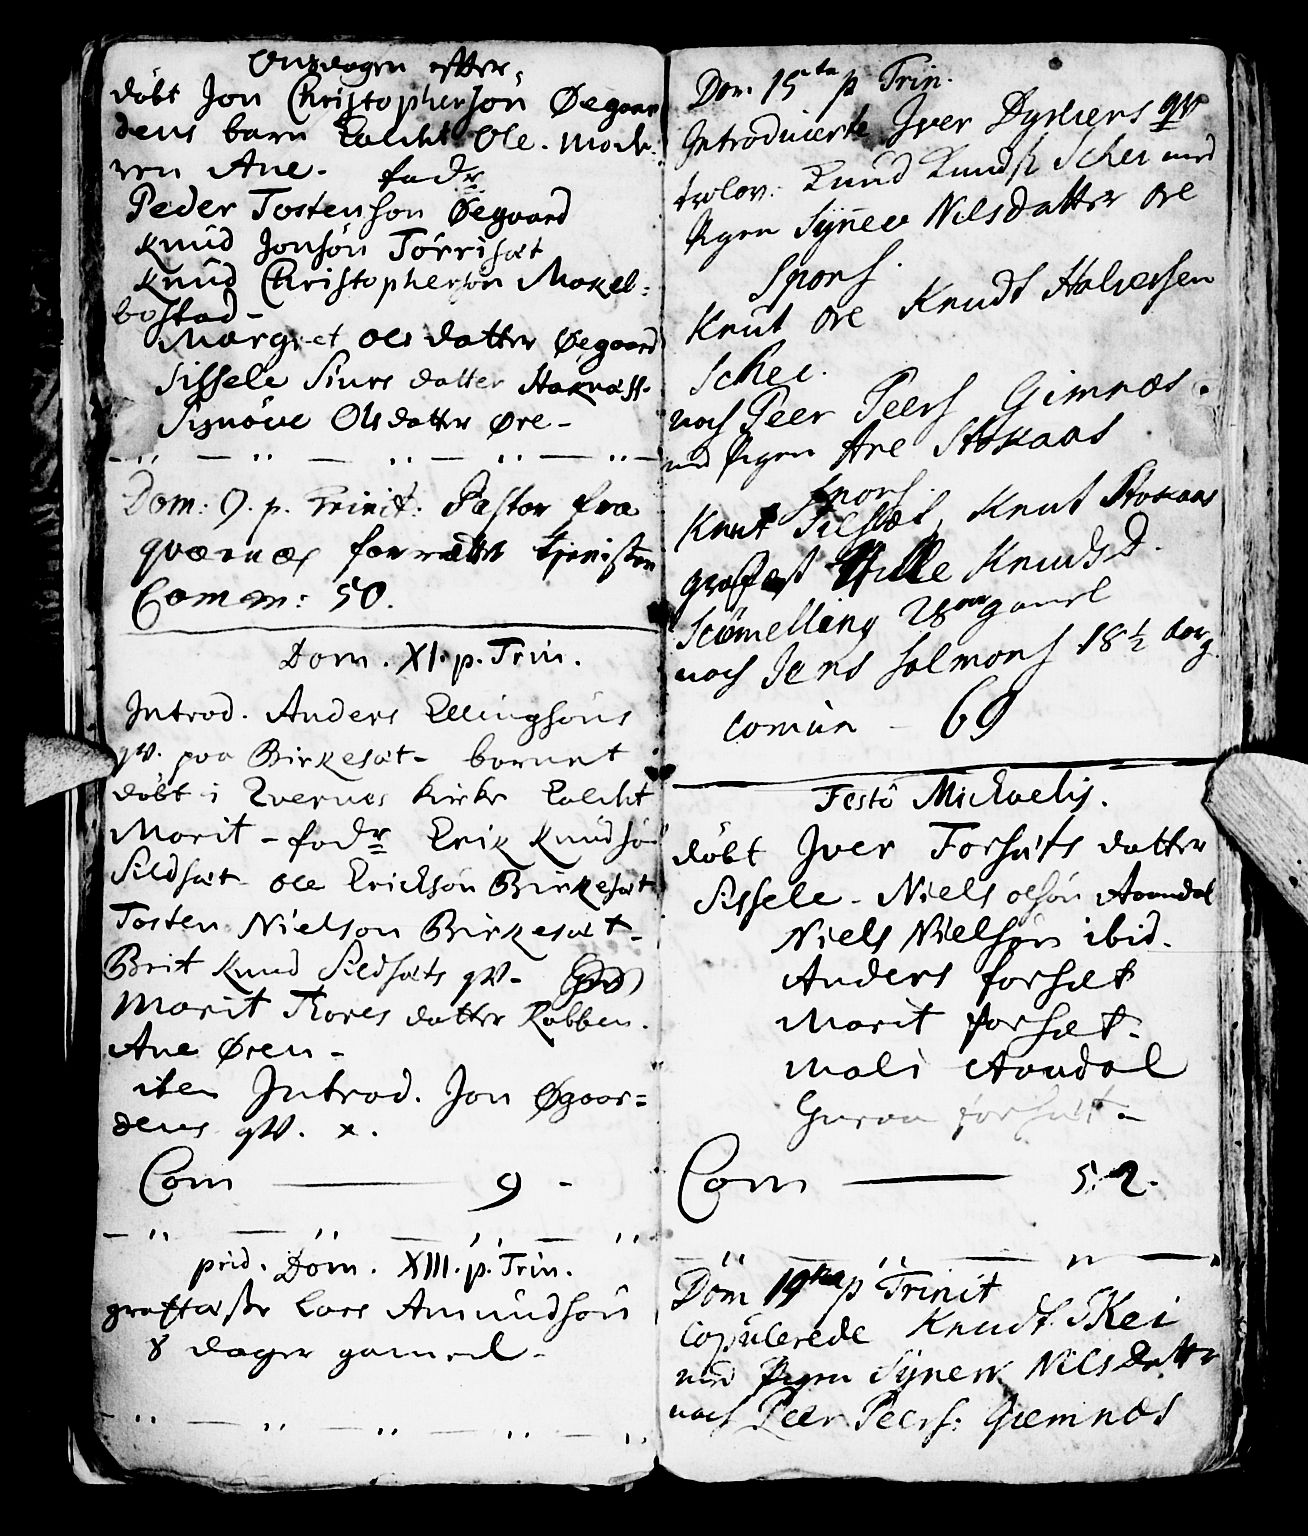 Onsdagen efter
döbt Jon Christophersön Øegaar
dens barn kaldt Ole. Mode-
ren Ane. fadr
Peder Tostenson Øegaard
Knud Jonsön Törrisæt
Knud Christophersön Mækel-
bostad -
Margret Ols datter Øegaard
Sissele Siurs datter
Signöve Olsdatter Øre -
Dom: 9. p. Trinit: Pastor fra
qværnæs forrættet tjenisten
Comm: 50.
Dom. XI. p. Trin.
Introd. Anders Ellingsöns
qv. paa Birkesæt - barnet
döbt i Qvernes kirke kaldet
Marit - fadr Erik Knudsön
Sildsæt ole Ericksön Birkesæt
Tosten Nielson Birkesæt -
Brit Knud Sildsæts qv -
Marit Tores datter Rabben.
Ane Øren -
item Introd. Jon Øgaar=
dens qv. x.
Com — 9 -
prid. Dom. XIII. p. Trin.
graffæste Lars Amundsön
8 dager gamel -
Dom 15ta p Trin.
Introducerte Iver Dyrliens qv
trolov: Knud Knuds Schei med
Pigen Synev Nilsdatter øre
Spons.
Knut øre Knudt Halversen
Schei.
noch Peer Peers Gimnæs.
med Pigen Ane Stokaas
spons.
Knut Silsæt, Knut Stokaas
grafæst Sille Knudsd.
noch Jens Salmons 18½ aar g.
comun - 69
Festo Michaelis.
döbt Iver Forsæts datter
Sissele - Niels olsön Aandal
Niels Nielsön ibid.
Anders forsæt
Marit forsæt -
Mali Aandal
Guroa forsæt -
Com — 52.
Dom 19na p Trinit
Copulerede Knudt Skei
med Pigen Synew Nilsdatter
noch Peer Peers: Giemnæs